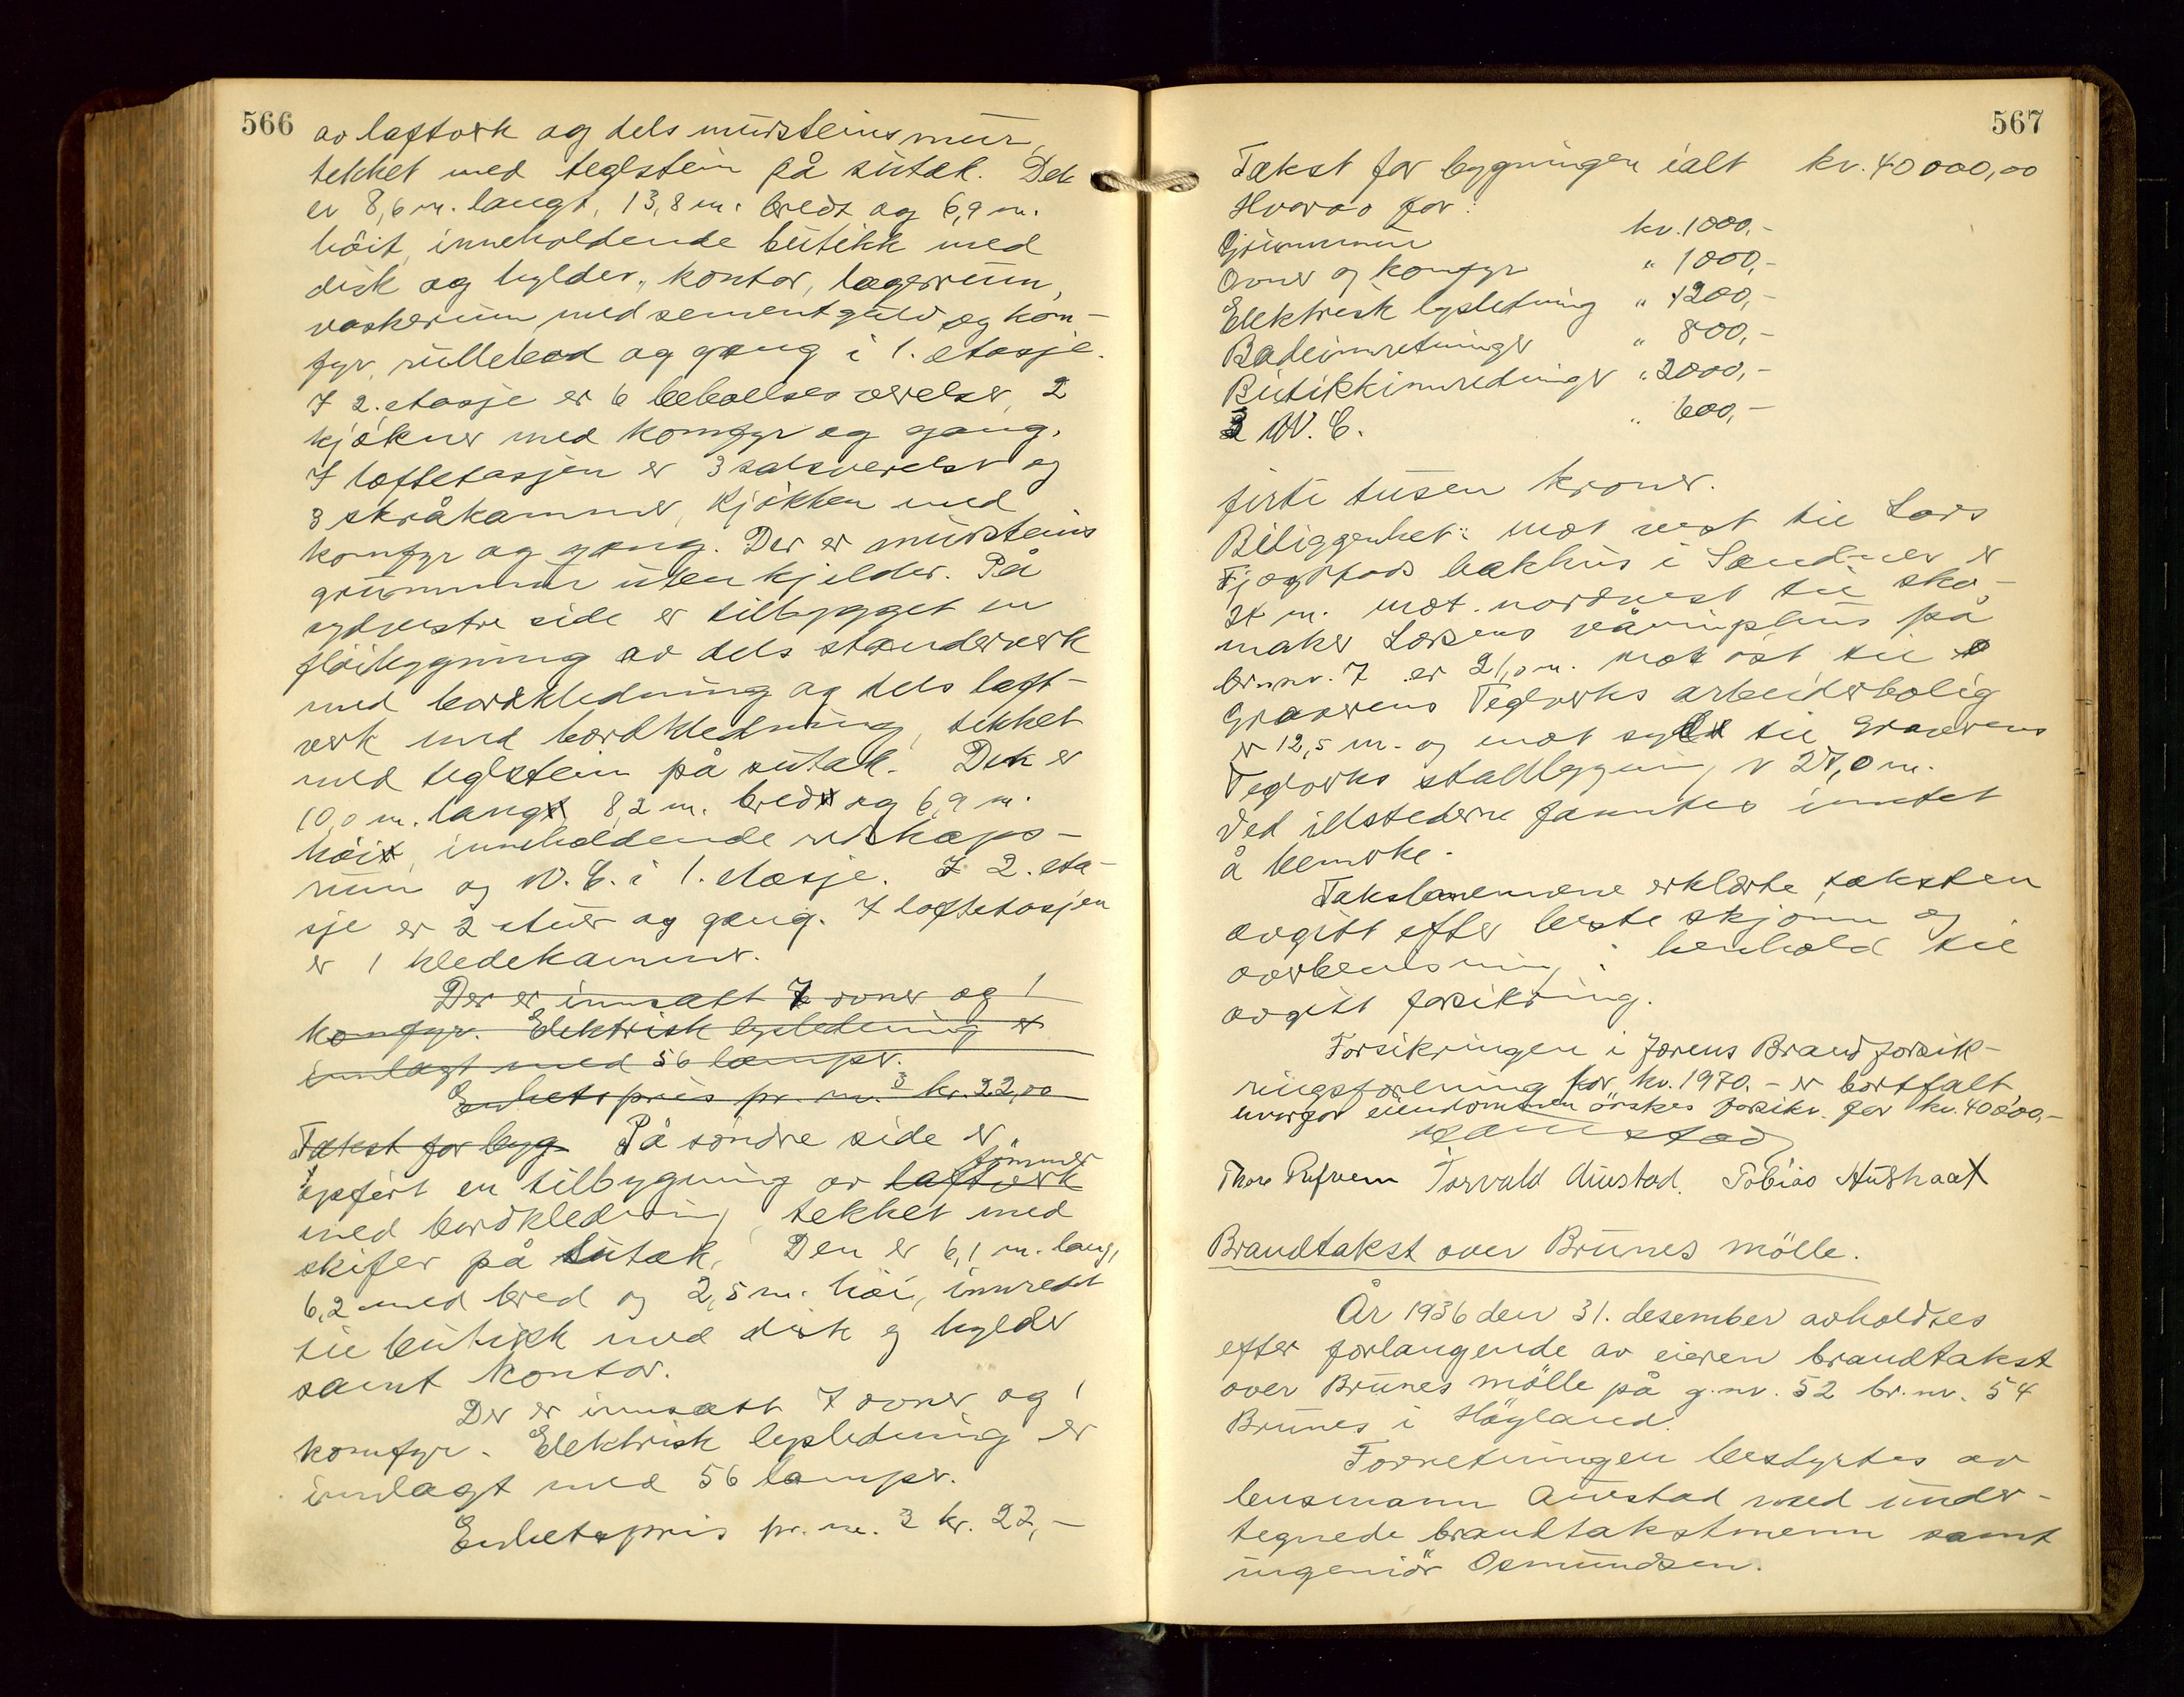 566
av laftverk og dels mursteinsmur,
tekket med teglstein på sutak. Det
er 8,6 m. langt, 13,8 m. bredt og 6,9 m.
höit, inneholdende butikk med
disk og hylder, kontor, lagerrum,
vaskerum med sementgulv og kom-
fyr, rullebod og gang i 1. etasje.
I 2. etasje er 6 beboelsesværelser, 2
kjökner med komfyr og gang.
I loftetasjen er 3 salsværelser og
3 skråkammer, kjökken med
komfyr og gang. Der er mursteins
grunnmur uten kjelder. På
sydvestre side er tilbygget en
flöibygning av dels stenderverk
med bordkledning og dels laft-
verk med bordkledning, tekket
med teglstein på sutak. Den er
10,0 m. lang, 8,2 m. bred og 6,9 m.
höi, inneholdende redskaps-
rum og W.C. i 1. etasje. I 2. eta-
sje er 2 stuer og gang. I loftetasjen
er 1 kledekammer.
Der er innsatt 7 ovner og 1
komfyr. Elektrisk lysledning er
innlagt med 56 lamper.
Enhetspris pr. m.3 kr. 22,00
Takst for byg På söndre side er
tömmer
opfört en tilbygning av laftverk
med bordkledning, tekket med
skifer på sutak. Den er 6,1 m. lang,
6,2 med bred og 2,5 m. höi, innredet
til butikk med disk og hylder
samt kontor.
Der er innsatt 7 ovner og 1
komfyr. Elektrisk lysledning er
innlagt med 56 lamper.
Enhetspris pr. m. 3 kr. 22,-
567
Takst for bygningen ialt kr. 40000,00
Hvorav for:
Grunnmur kr. 1000,-
Ovner og komfyr " 1000,-
Elektrisk lysledning " 1200,-
Badeinnretninger " 800,-
Butikkinnredninger " 2000,-
3 W.C. " 600,-
firti tusen kroner.
Beliggenhet: mot vest til Lars
bakhus i Sandnes er
m. mot nordvest til sko-
maker Larsens våningshus på
br.nr. 7 er 21,0 m. mot öst til
Graverens Teglverks arbeiderbolig
er 12,5 m. og mot syd til Graverens
Teglverks stallbygning er 27,0 m.
Ved ildstederne fanntes inntet
å bemerke.
Takstmennene erklærte taksten
avgitt efter beste skjönn og
overbevisning i henhold til
avgitt forsikring.
Forsikringen i Jærens Brandforsik-
ringsforening for kr. 1970.- er bortfalt,
hvorfor eiendommen önskes forsikr. for kr. 40000,-
Torvald Austad. Tobias Aushaat
Brandtakst over Brunes mölle.
År 1936 den 31. desember avholdtes
efter forlangende av eieren brandtakst
over Brunes mölle på g.nr. 52 br.nr. 54
Brunes i Höyland.
Forretningen bestyrtes av
lensmann Austad med under-
tegnede brandtakstmenn samt
ingeniör Osmundsen.